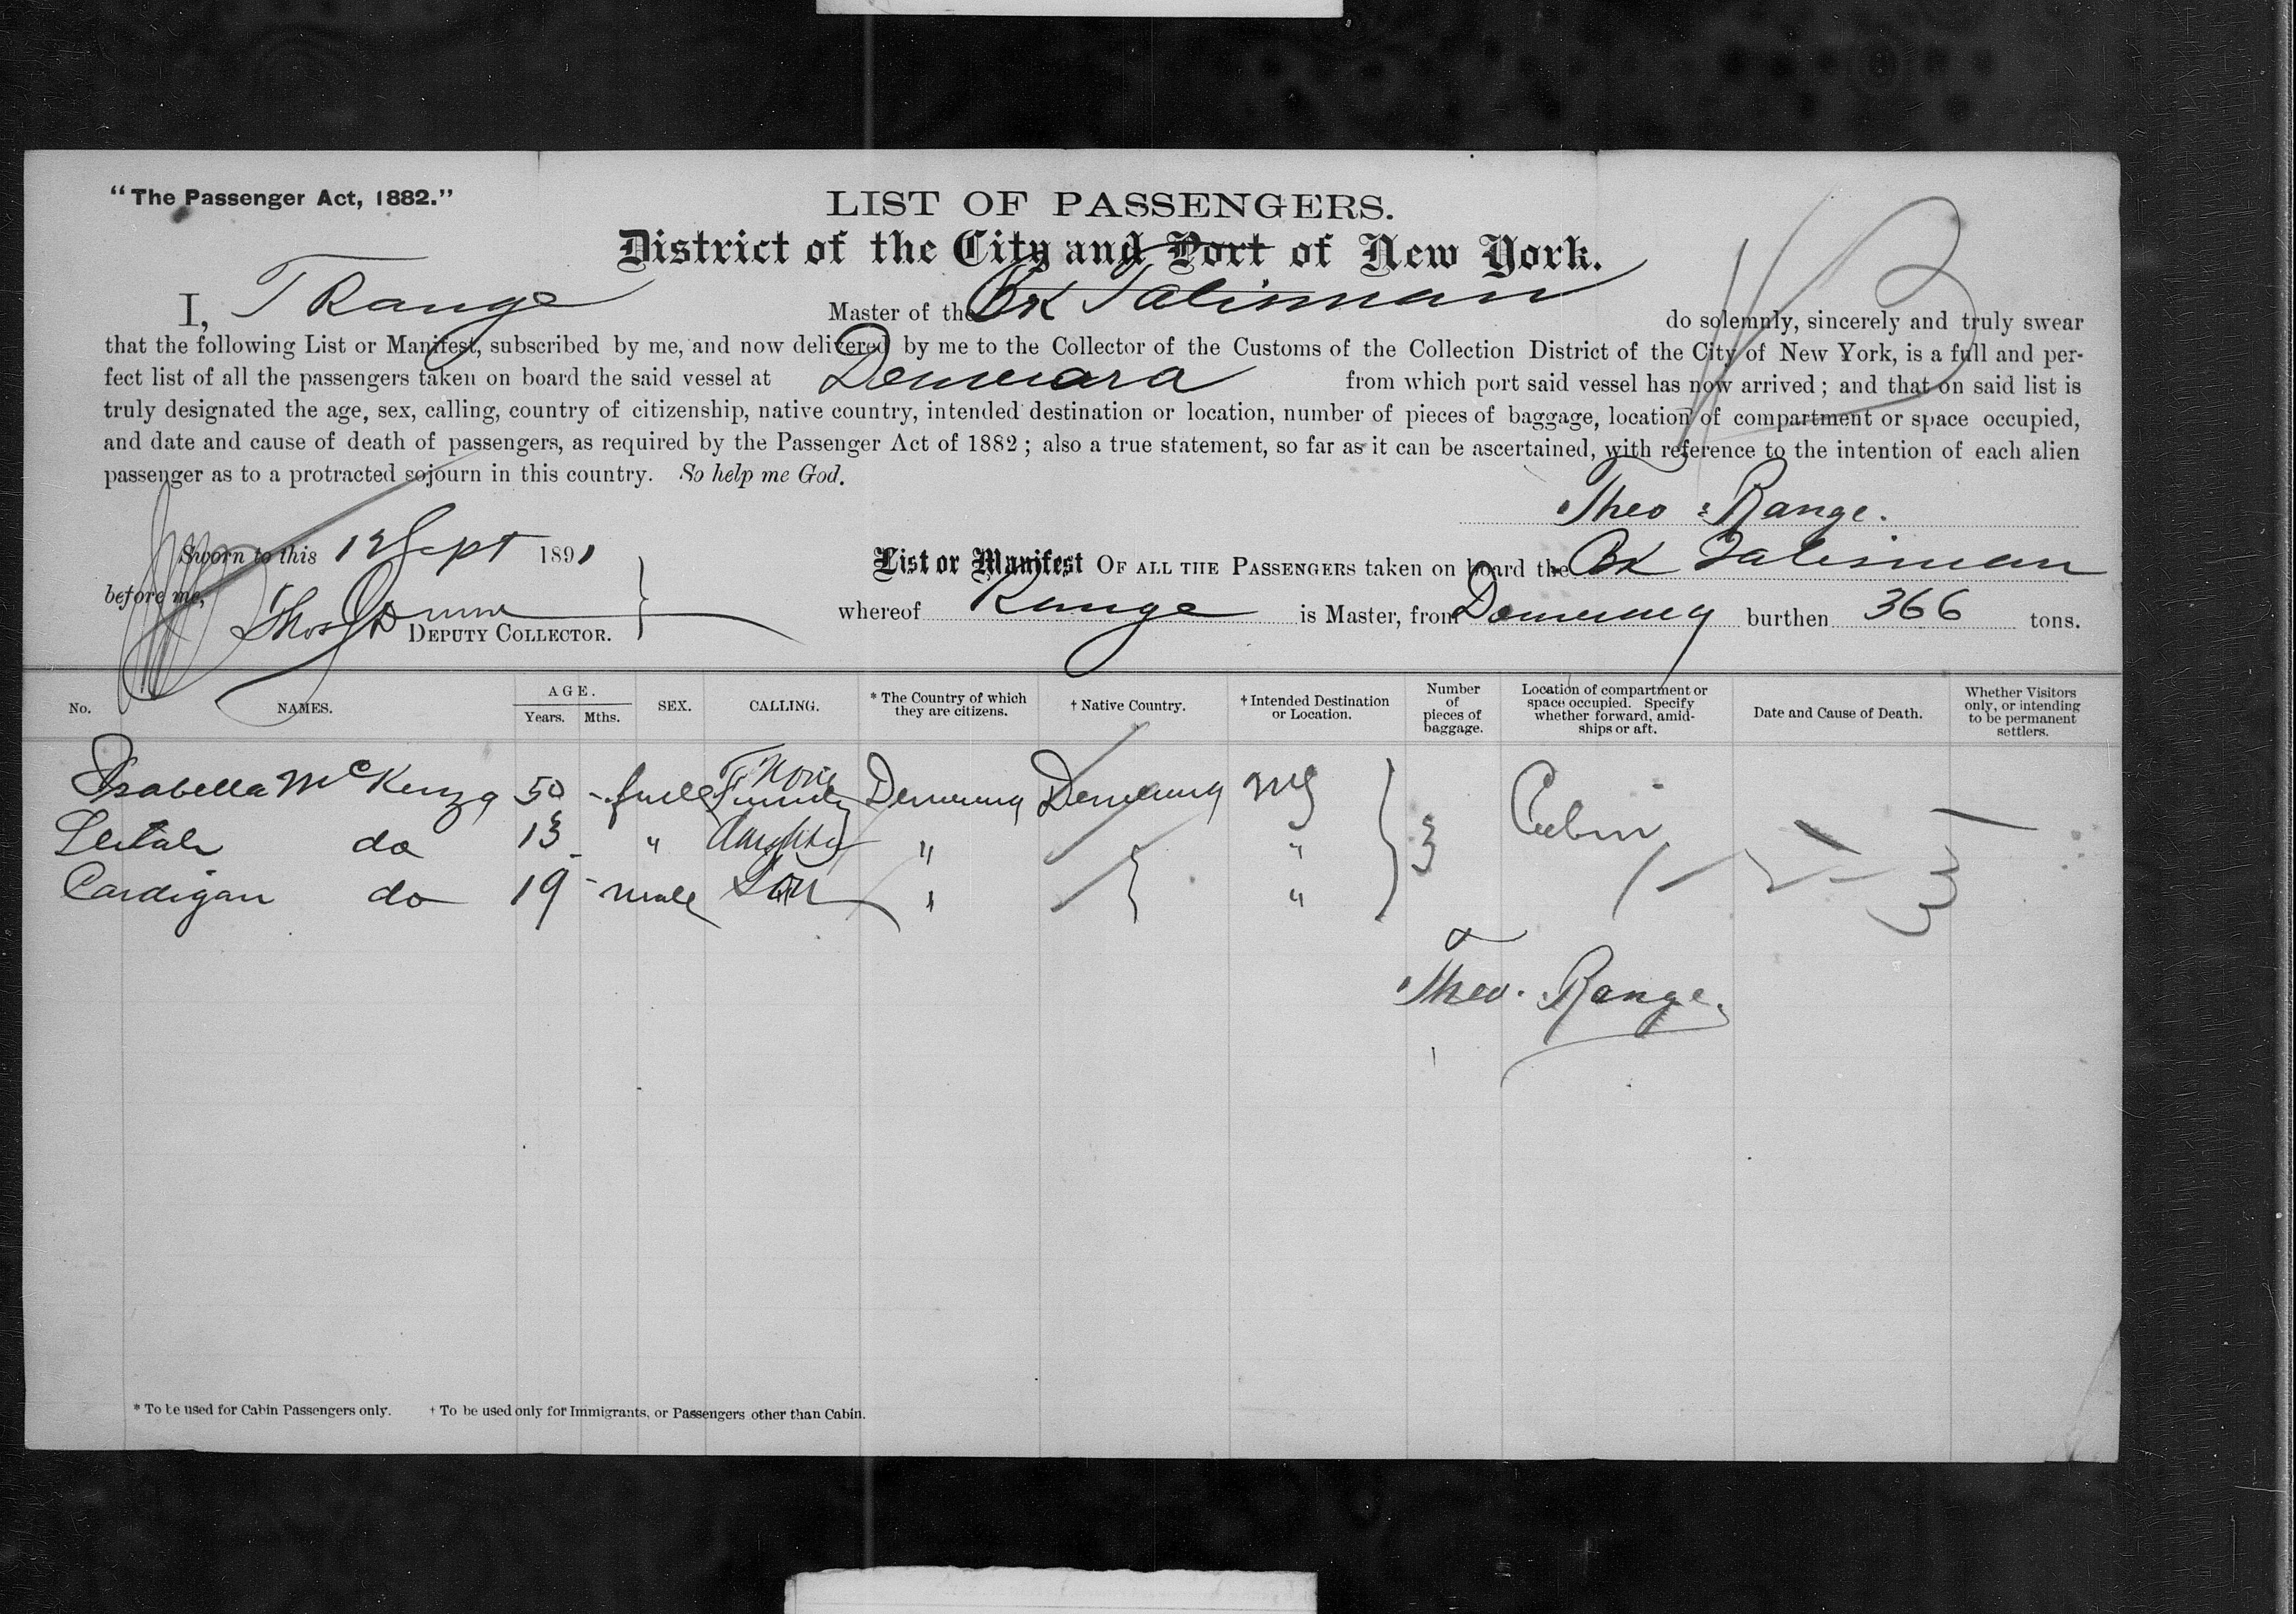 "The Passenger Act, 1882."
LIST OF PASSENGERS.
District of the City and Port of New York.
I, T Range Master of the Bk Talisman do solemnly, sincerely and truly swear
that the following List or Manifest, subscribed by me, and now delivered by me to the Collector of the Customs of the Collection District of the City of New York, is a full and per-
fect list of all the passengers taken on board the said vessel at Demerara from which port said vessel has now arrived; and that on said list is
truly designated the age, sex, calling, country of citizenship, native country, intended destination or location, number of pieces of baggage, location of compartment or space occupied,
and date and cause of death of passengers, as required by the Passenger Act of 1882; also a true statement, so far as it can be ascertained, with reference to the intention of each alien
passenger as to a protracted sojourn in this country. So help me God.
Theo Range.
Sworn to this 12 Sept 1891
List or Manifest OF ALL THE PASSENGERS taken on board the Bk Talisman
before me, Thos Dunn DEPUTY COLLECTOR.
whereof Range is Master, from burthen 366 tons.
No. NAMES. AGE. Years. Mths. SEX. CALLING. * The Country of which they are citizens. † Native Country. † Intended Destination or Location. Number of pieces of baggage. Location of compartment or space occupied. Specify whether forward, amid-ships or aft. Date and Cause of Death. Whether Visitors only, or intending to be permanent settlers.
Isabella McKenzy 50 - None NY Cabin
do 13 - " daughter " " 3
Cardigan do 19 - male Son " "
Theo. Range.
* To be used for Cabin Passengers only. † To be used only for Immigrants, or Passengers other than Cabin.